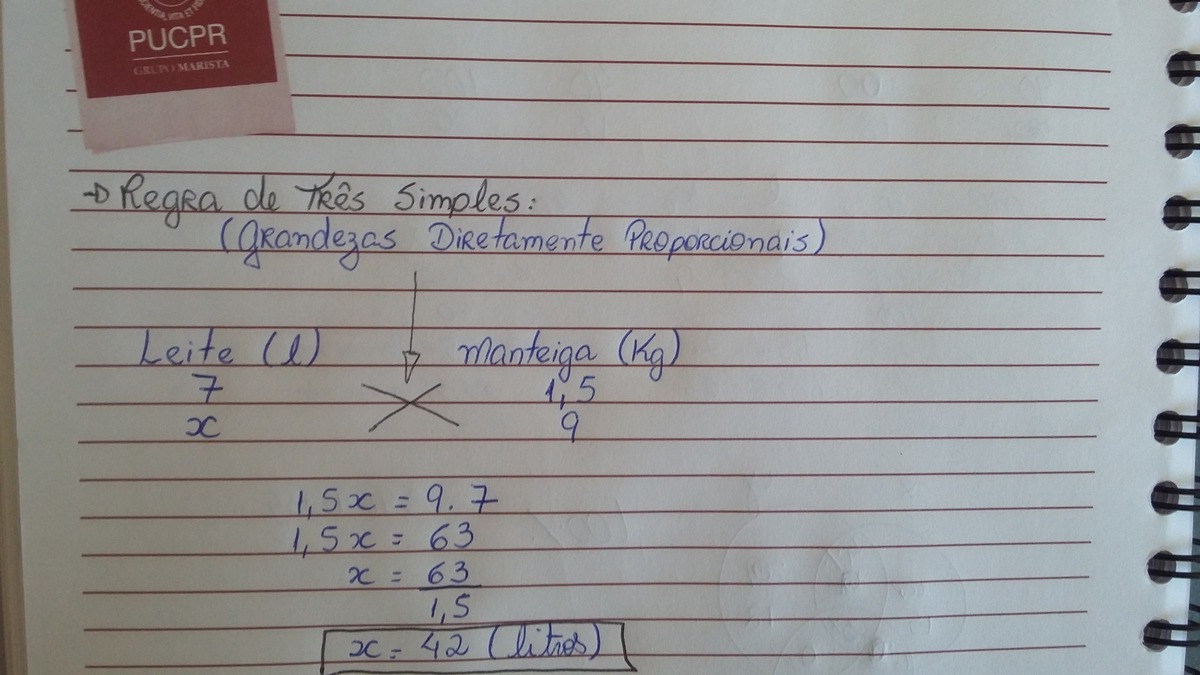 PUCPR
GRUPO MARISTA
Regra de Três Simples:
(Grandezas Diretamente Proporcionais)
Leite (l) Manteiga (Kg)
7 1,5
x 9
1,5x = 9.7
1,5x = 63
x = 63
1,5
x = 42 (litros)